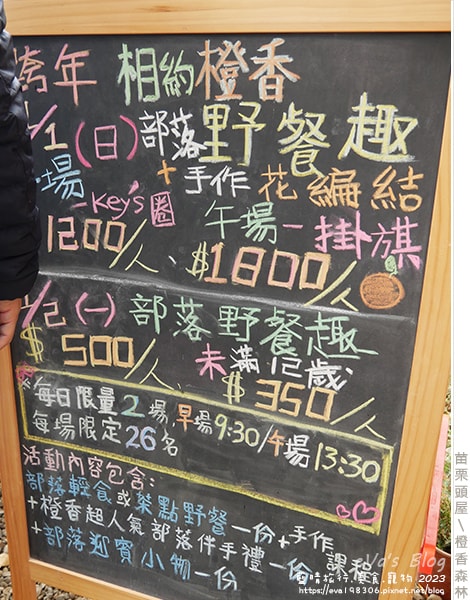 跨年 相約橙香
1/1(日)部落野餐趣
+手作花編結
場-Key's圈 午場-掛旗
1200/人、$1800/人
1/2(一)部落野餐趣
$500/人、未滿12歲:
$350/人
※每日限量2場,早場9:30/午場13:30
每場限定26名
活動內容包含:
部落輕食或葉點野餐一份+手作
+橙香超人氣部落伴手禮一份 課程
+部落迎賓小物一份
苗栗頭屋\橙香森林
Eva's Blog
旅行.美食.寵物 2023
https://eva198306.pixnet.net/blog